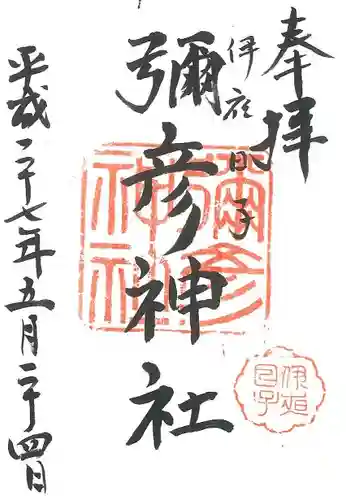 奉拝
伊夜日子
彌彦神社
平成二十七年五月二十四日
彌彦神社